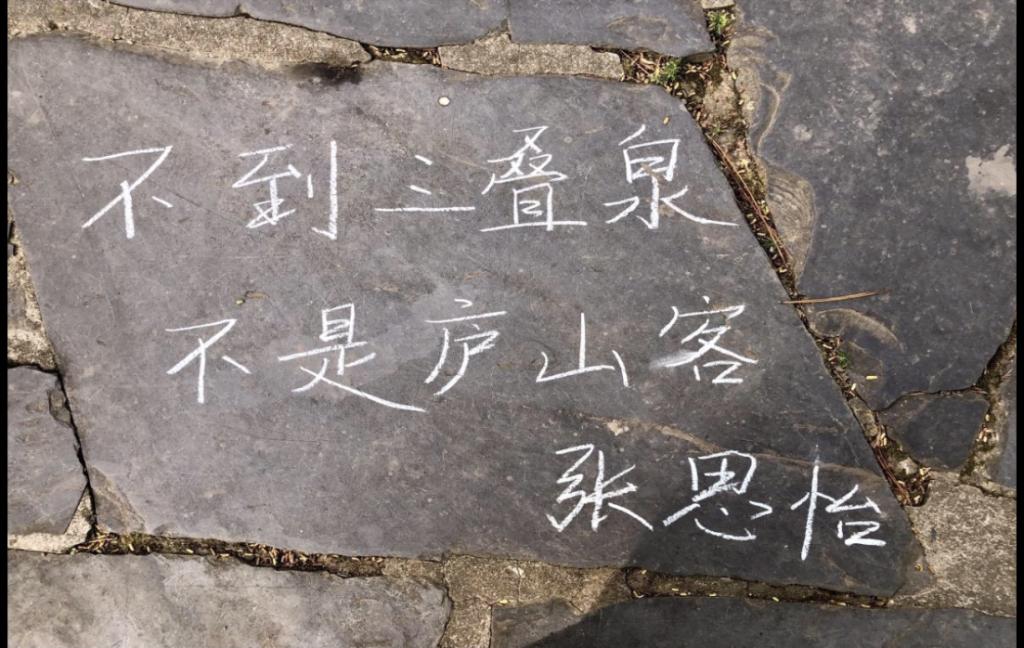 不到三叠泉
不是庐山客
张思怡